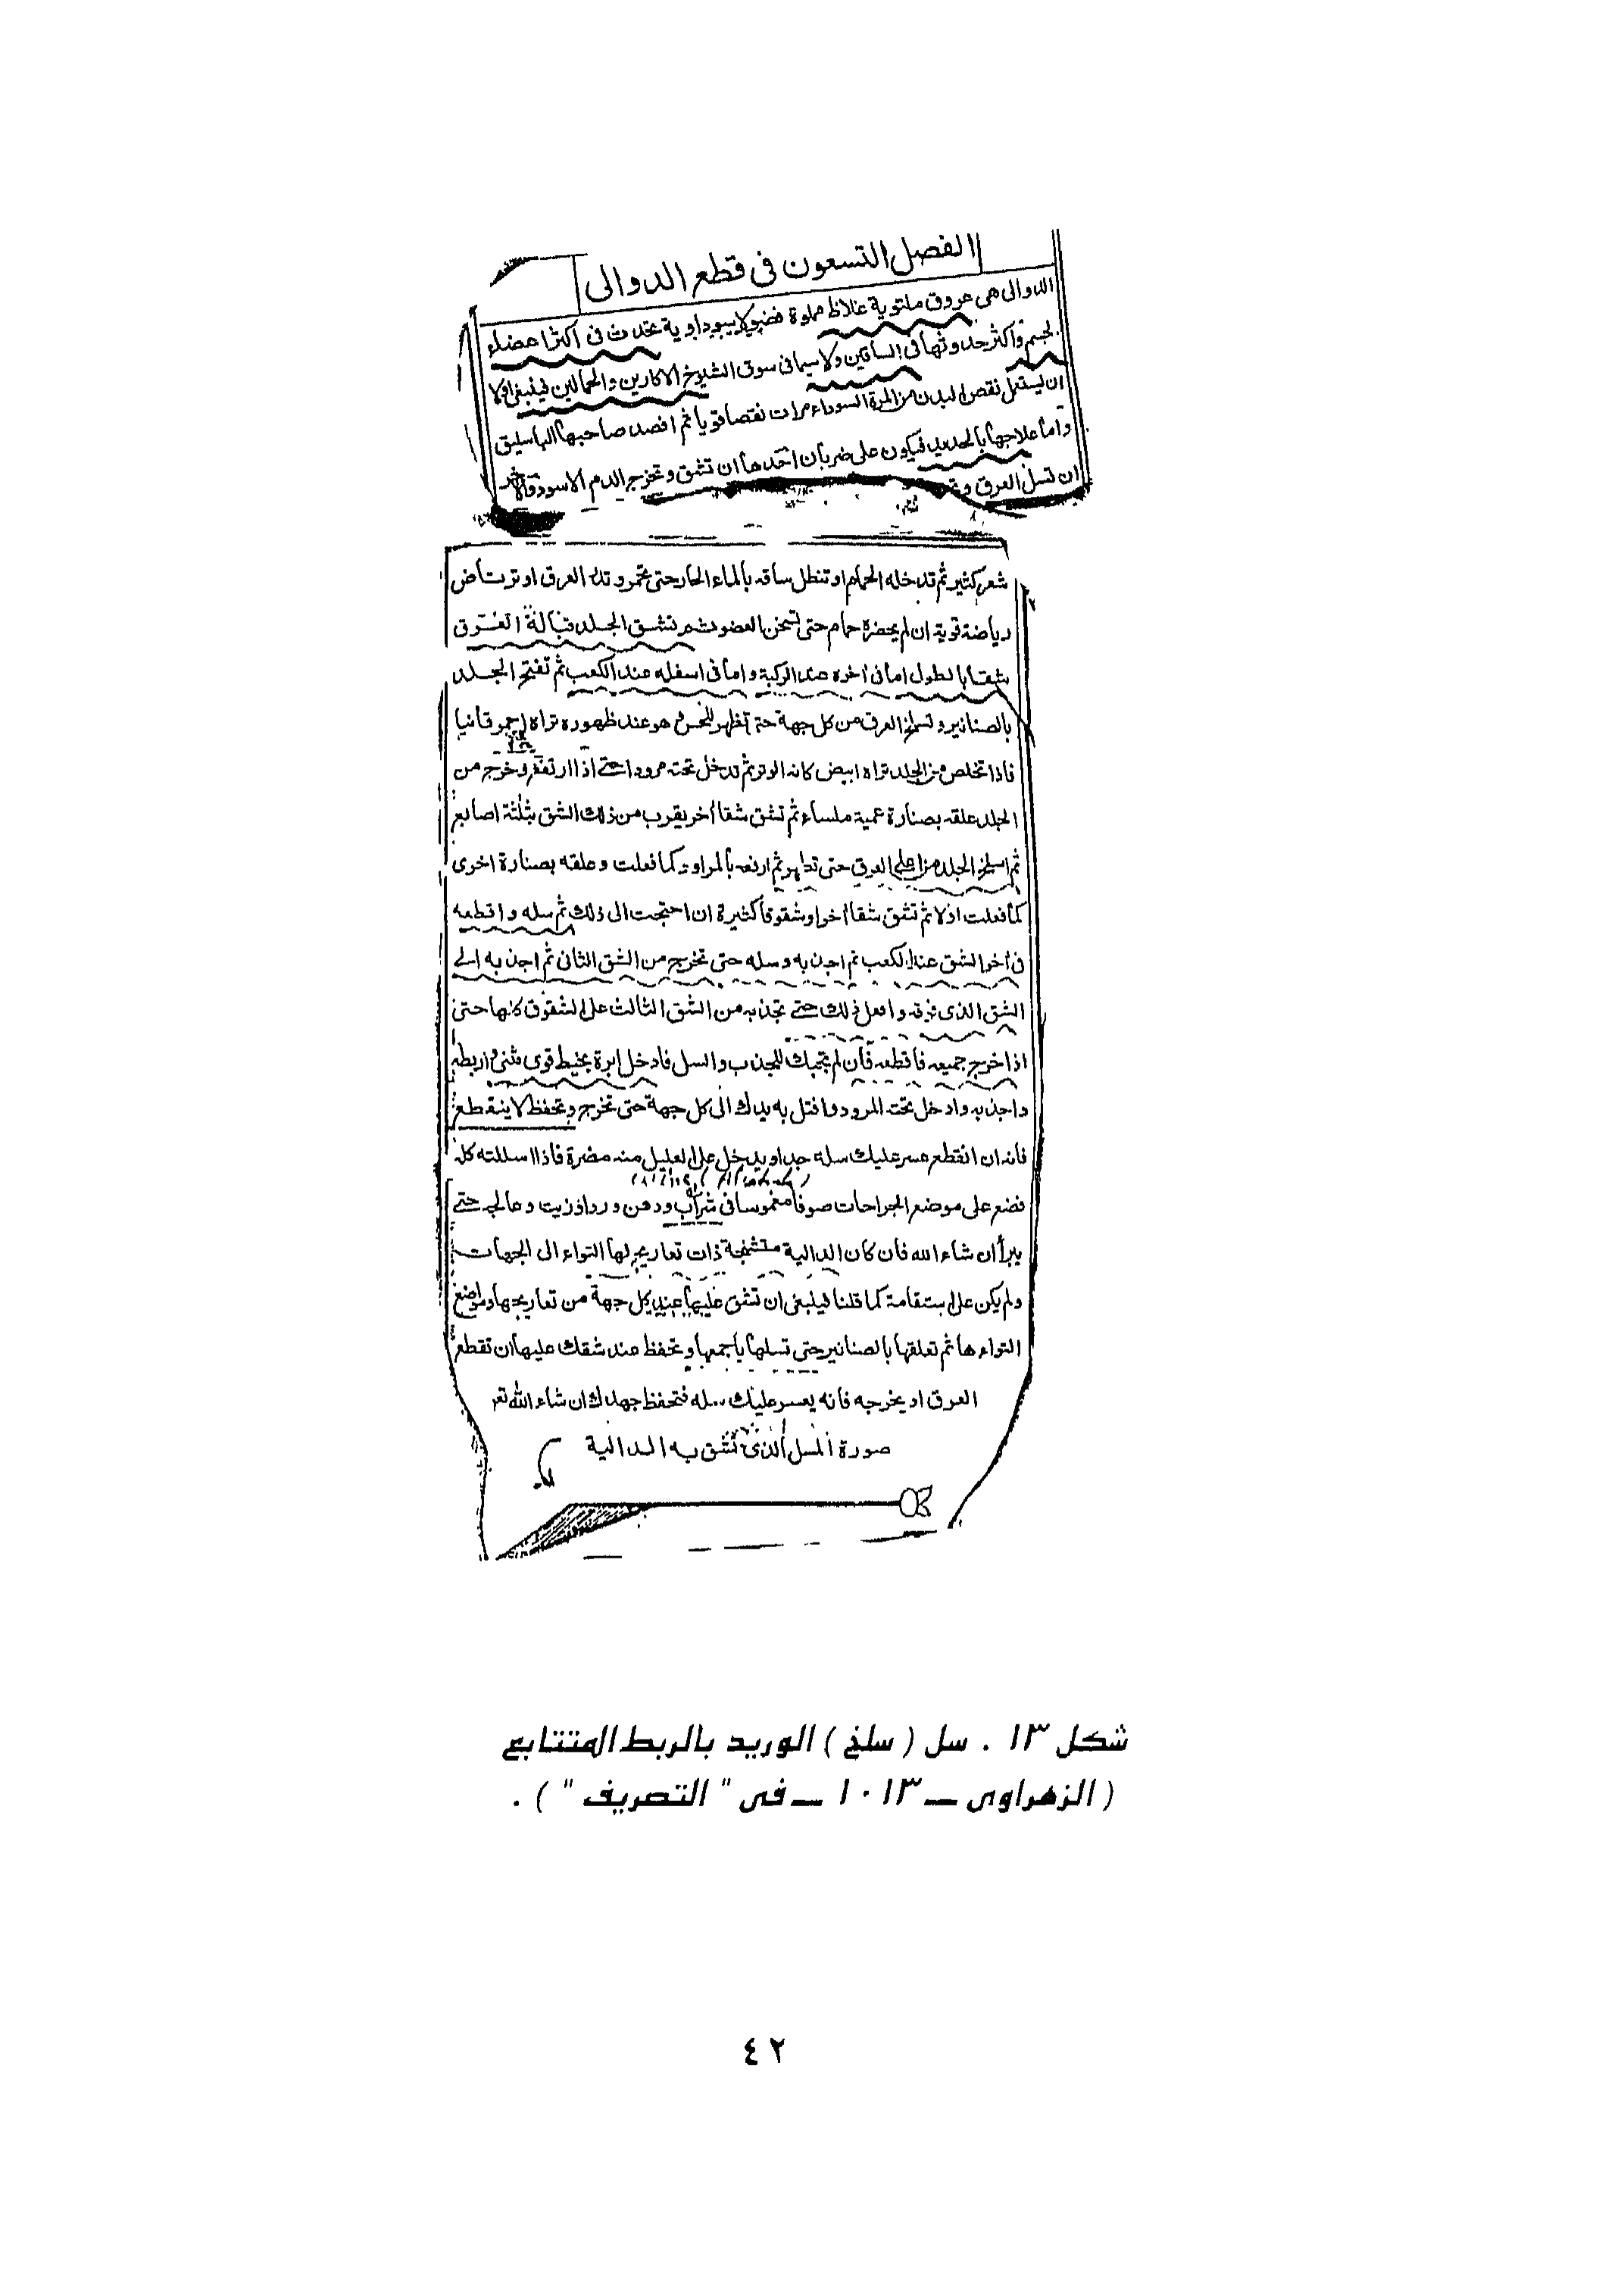 الفصل التسعون فى قطع الدوالى
الدوالى هى عروق ملتوية غلاظ مملوة فضولا سوداوية تحدث فى اكثر اعضاء
الجسم واكثر حدوثها فى الساقين ولا سيما فى سوق الشيوخ الاكارين والحمالين فينبغى اولا
ان يستعمل نقص البدن من المرة السوداء مرات نقصا قويا ثم افصد صاحبها الباسليق
واما علاجها بالحديد فيكون على ضربان احدها ان تشق وتخرج الدم الاسود والاخر
ان تسل العرق
شعر كثير ثم تدخله الحمام او تنطل ساقه بالماء الحار حتى تحمر وتدر العرق او ترتاض
رياضة قوية ان لم يحضره حمام حتى تسخن العضو ثم تشق الجلد قبالة العرق
شقا بالطول اما فى اخره عند الركبة واما فى اسفله عند الكعب ثم تفتح الجلد
بالصنانير وتسلخ العرق من كل جهة حتى تظهر للحس وهو عند ظهوره تراه احمر قانيا
فاذا تخلص من الجلد تراه ابيض كانه الوتر ثم تدخل تحته مرودا حتى اذا ارتفع وخرج من
الجلد علقه بصنارة عمية ملساء ثم تشق شقا اخر يقرب من ذلك الشق بثلثة اصابع
ثم اسلخ الجلد من اعلى العرق حتى تظهر ثم ارفعه بالمراود كما فعلت وعلقه بصنارة اخرى
كما فعلت اولا ثم تشق شقا اخر او شقوقا كثيرة ان احتجت الى ذلك ثم سله واقطعه
فى اخر الشق عند الكعب ثم اجذبه وسله حتى تخرج من الشق الثانى ثم اجذبه الى
الشق الذى فوقه وافعل ذلك حتى تجذبه من الشق الثالث على الشقوق كلها حتى
اذا خرج جميعه فاقطعه فان لم يجبك للجذب والسل فادخل ابرة بخيط قوى مثنى واربطه
واجذبه وادخل تحت المرود وافتل به يدك الى كل جهة حتى تخرج وتحفظ لا ينقطع
فانه ان انقطع عسر عليك سله جدا ويدخل على العليل منه مضرة فاذا اسللته كله
فضع على موضع الجراحات صوفا مغموسا فى شراب ودهن ورد او زيت وعالجه حتى
يبرأ ان شاء الله فان كان الدالية متشنجة ذات تعاريج لها التواء الى الجهات
ولم يكن على استقامة كما قلنا فينبغى ان تشق عليها عند كل جهة من تعاريجها ومواضع
التواءها ثم تعلقها بالصنانير حتى تسلها باجمعها وتحفظ عند شقك عليها ان تقطع
العرق او يخرجه فانه يعسر عليك سله فتحفظ جهدك ان شاء الله تعـ
صورة المسل الذى تشق به الدالية
شكل ١٣ . سل ( سلخ ) الوريد بالربط المتتابع
( الزهراوى ـــ ١٠١٣ ـــ فى " التصريف " ) .
٤٢